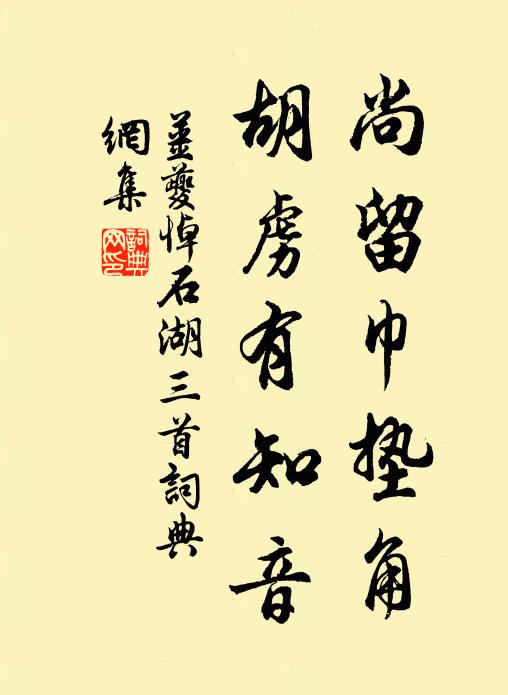 尚留巾墊角
胡虜有知音
姜夔悼石湖三首詞典
網集
詞典網印